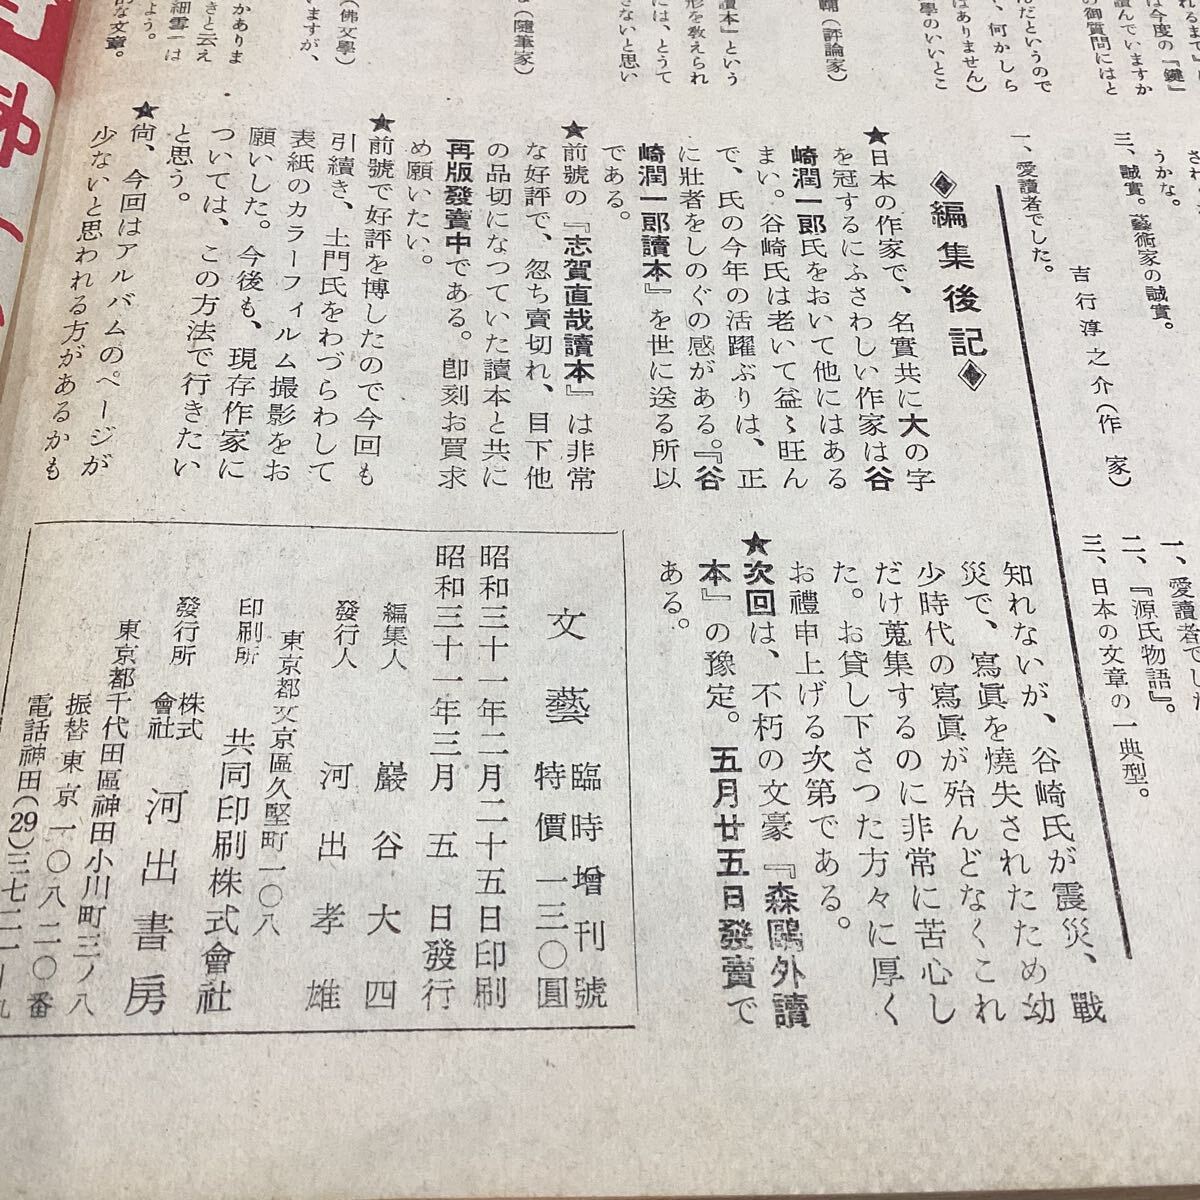 れるまで』
は今度の『鍵』
読んでいますか
の御質問にはと
んだというので
、何かしら
はありません)
學のいいとこ
輔(評論家)
讀本』という
形を教えられ
には、とうて
さないと思い
(隨筆家)
(佛文學)
いますが、
かありま
きと云え
細雪』は
よう。
的な文章。
うかな。
三、誠實。藝術家の誠實。
吉行淳之介(作家)
一、愛讀者でした。
一、愛讀者でした
二、『源氏物語』。
三、日本の文章の一典型。
◆編集後記◆
★日本の作家で、名實共に大の字
を冠するにふさわしい作家は谷
崎潤一郎氏をおいて他にはある
まい。谷崎氏は老いて益〻旺ん
で、氏の今年の活躍ぶりは、正
に壯者をしのぐの感がある。『谷
崎潤一郎讀本』を世に送る所以
である。
★前號の『志賀直哉讀本』は非常
な好評で、忽ち賣切れ、目下他
の品切になつていた讀本と共に
再版發賣中である。卽刻お買求
め願いたい。
★前號で好評を博したので今回も
引續き、土門氏をわづらわして
表紙のカラーフィルム撮影をお
願いした。今後も、現存作家に
ついては、この方法で行きたい
と思う。
★尙、今回はアルバムのページが
少ないと思われる方があるかも
知れないが、谷崎氏が震災、戰
災で、寫眞を燒失されたため幼
少時代の寫眞が殆んどなくこれ
だけ蒐集するのに非常に苦心し
た。お貸し下さつた方々に厚く
お禮申上げる次第である。
★次回は、不朽の文豪『森鷗外讀
本』の豫定。五月廿五日發賣で
ある。
文藝 臨時增刊號
特價 一三〇圓
昭和三十一年二月二十五日印刷
昭和三十一年三月五日發行
編集人 巖谷大四
發行人 河出孝雄
東京都文京區久堅町一〇八
印刷所 共同印刷株式會社
發行所 株式會社 河出書房
東京都千代田區神田小川町三ノ八
振替東京一〇八二〇番
電話神田(29)三七二一